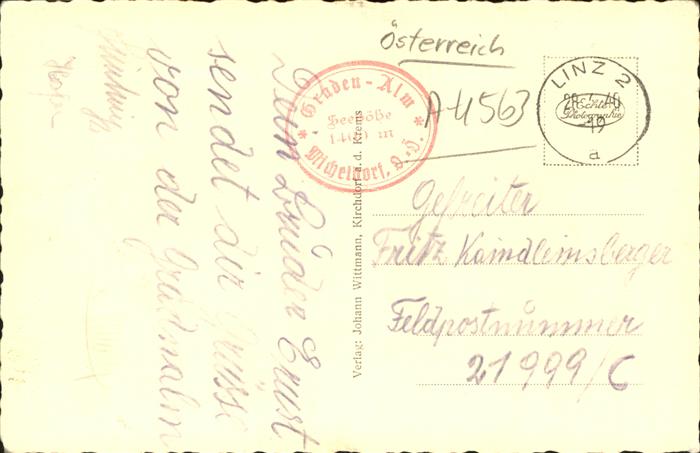 Österreich
A-4563
LINZ 2
28.4.40
19
a
Echte
Photographie
Gräden-Alm
Seehöhe
1400 m
Micheldorf, O.-Ö.
Gefreiter
Fritz Kaindleinsberger
Feldpostnummer
21999/C
Verlag: Johann Wittmann, Kirchdorf a. d. Krems
Dein Bruder Ernst
sendet dir Grüsse
von der Gradnalm